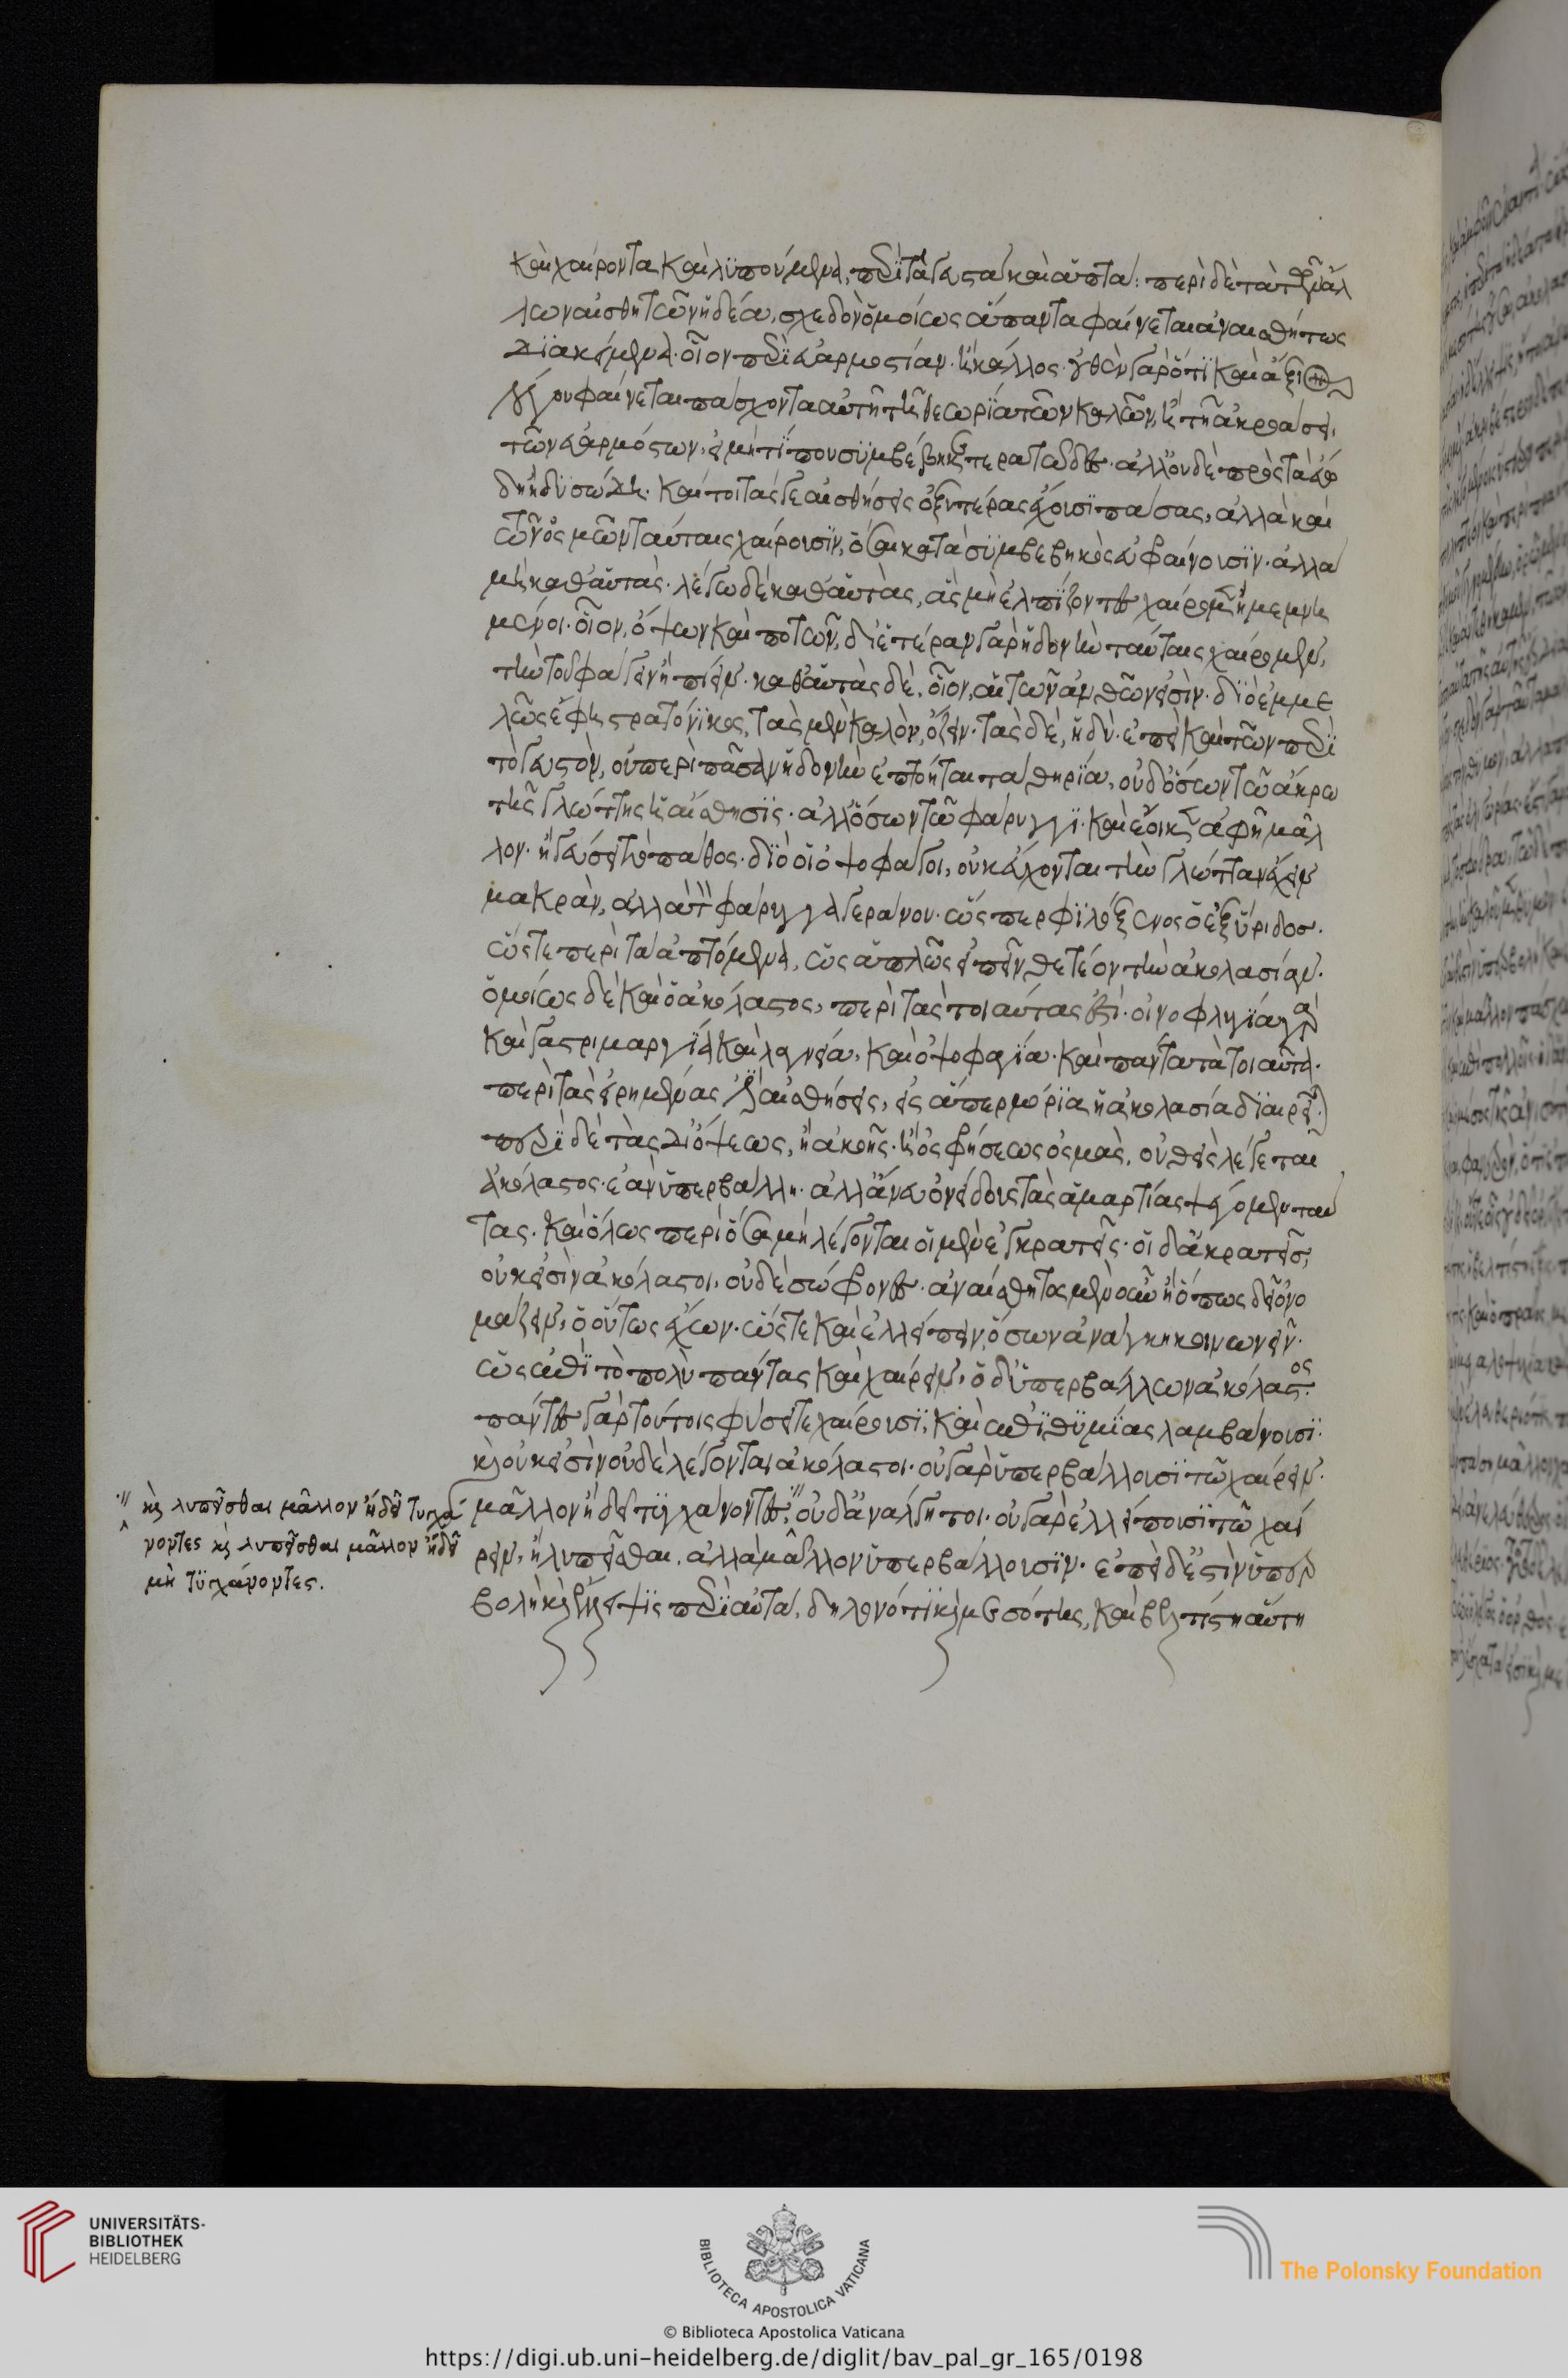 καὶ χαίροντα καὶ λυπούμενα, περὶ τὰ γευστὰ καὶ ἁπτά· περὶ δὲ τὰ τῶν ἀλ
λων αἰσθητῶν ἡδέα, σχεδὸν ὁμοίως ἅπαντα φαίνεται ἀναισθήτως
διακείμενα· οἷον περὶ εὐαρμοστίαν· ἢ κάλλος· οὐθὲν γὰρ ὅτι καὶ ἄξιον
λόγου φαίνεται πάσχοντα αὐτῇ τῇ θεωρία τῶν καλῶν, ἢ τῇ ἀκροάσει,
τῶν εὐαρμόστων, εἰ μή τί που συμβέβηκε τερατῶδες· ἀλλ' οὐδὲ πρὸς τὰ εὐώ
δη ἢ δυσώδη· καίτοι τάς γε αἰσθήσεις ὀξυτέρας ἔχουσι πάσας, ἀλλὰ καὶ
τῶν ὀσμῶν ταύταις χαίρουσιν, ὅσαι κατὰ συμβεβηκὸς εὐφραίνουσιν· ἀλλὰ
μὴ καθ' αὑτάς· λέγω δὲ καθ' αὑτὰς, αἷς μὴ ἐλπίζοντες χαίρομεν ἢ μεμνη
μένοι· οἷον, ὄψων καὶ ποτῶν, δι' ἑτέραν γὰρ ἡδονὴν ταύταις χαίρομεν,
τὴν τοῦ φαγεῖν ἢ πιεῖν· καθ' αὑτὰς δὲ, οἷον, αἱ τῶν ἀνθῶν εἰσίν· διὸ ἐμμε
λῶς ἔφη στρατόνικος, τὰς μὲν καλὸν, ὄζειν· τὰς δὲ, ἡδύ· ἐπεὶ καὶ τῶν περὶ
τὸ γευστὸν, οὐ περὶ πᾶσαν ἡδονὴν ἐπτόηται τὰ θηρία, οὐδ' ὅσων τῶ ἄκρω
τῆς γλώττης ἡ αἴσθησις· ἀλλ' ὅσων τῶ φάρυγγι· καὶ ἔοικεν ἁφῇ μᾶλ
λον· ἢ γεύσει τὸ πάθος· διὸ οἱ ὀψοφάγοι, οὐκ εὔχονται τὴν γλῶτταν ἔχειν
μακρὰν, ἀλλὰ τὸν φάρυγγα γεράνου· ὥσπερ φιλόξενος ὁ ἐξύριδος·
ὥστε περὶ τὰ ἁπτόμενα, ὡς ἁπλῶς εἰπεῖν θετέον τὴν ἀκολασίαν·
ὁμοίως δὲ καὶ ὁ ἀκόλαστος, περὶ τὰς τοιαύτας ἐστί· οἰνοφλυγία γὰρ
καὶ γαστριμαργία καὶ λαγνεία, καὶ ὀψοφαγία· καὶ πάντα τὰ τοιαῦτα·
περὶ τὰς εἰρημένας ἐστὶ αἰσθήσεις, εἰς ἅπερ μόρια ἡ ἀκολασία διαιρεῖται·
περὶ δὲ τὰς δι' ὄψεως, ἢ ἀκοῆς· ἢ ὀσφρήσεως ὀσμὰς, οὐθεὶς λέγεται
ἀκόλαστος· ἐὰν ὑπερβάλλη· ἀλλ' ἄνευ ὀνείδους τὰς ἁμαρτίας ψέγομεν ταύ
τας· καὶ ὅλως περὶ ὅσα μὴ λέγονται οἱ μὲν ἐγκρατεῖς· οἱ δ' ἀκρατεῖς,
οὐκ εἰσὶν ἀκόλαστοι, οὐδὲ σώφρονες· ἀναίσθητος μὲν οὖν ἢ ὅπως δεῖ ὀνο
μάζειν, ὁ οὕτως ἔχων· ὥστε καὶ ἐλλείπειν, ὅσων ἀνάγκη κοινωνεῖν·
ὡς ἐπὶ τὸ πολὺ πάντας καὶ χαίρειν, ὁ δ' ὑπερβάλλων ἀκόλαστος·
πάντες γὰρ τούτοις φύσει τε χαίρουσι, καὶ ἐπιθυμίας λαμβάνουσι·
καὶ οὐκ εἰσὶν οὐδὲ λέγονται ἀκόλαστοι· οὐ γὰρ ὑπερβάλλουσι τῶ χαίρειν·
μᾶλλον ἢ δεῖ τυγχάνοντες, οὐδ' ἀνάλγητοι· οὐ γὰρ ἐλλείπουσι τῶ χαί
ρειν, ἢ λυπεῖσθαι, ἀλλὰ μᾶλλον ὑπερβάλλουσιν· ἐπεὶ δ' ἐστὶν ὑπερ
βολὴ καὶ ἔλλειψις περὶ αὐτὰ, δηλονότι καὶ μεσότης, καὶ βελτίστη αὕτη
καὶ λυπεῖσθαι μᾶλλον ἢ δεῖ τυγχά
νοντες καὶ λυπεῖσθαι μᾶλλον ἢ δεῖ
μὴ τυγχάνοντες.
UNIVERSITÄTS-
BIBLIOTHEK
HEIDELBERG
BIBLIOTECA APOSTOLICA VATICANA
The Polonsky Foundation
© Biblioteca Apostolica Vaticana
https://digi.ub.uni-heidelberg.de/diglit/bav_pal_gr_165/0198